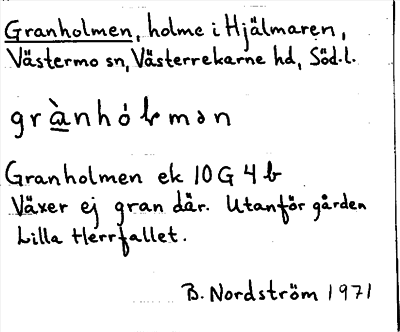 Granholmen, holme i Hjälmaren,
Västermo sn, Västerrekarne hd, Söd.l.
Granholmen ek 10 G 4 b
Växer ej gran där. Utanför gården
Lilla Herrfallet.
B. Nordström 1971